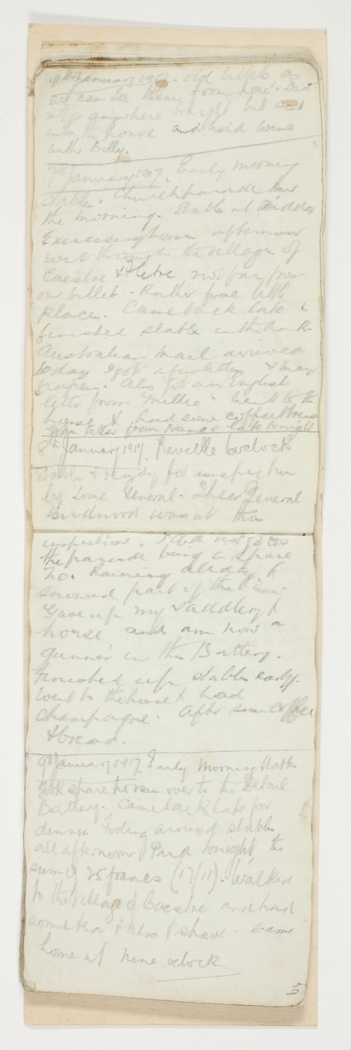 6th January 1917. old as
we can see them from here. Did
not go anywhere tonight but
the house and had some
in the Billy.
7th January 1917. Early morning
stables. Church parade
the morning. Stables at
Exercising horses afternoon
went through the village of
Caestre & Fletre not far from
our billet. Rather fine little
places. Came back late &
finished stables in the dark
Australian mail arrived
today I got a few letters & many
papers. Also got an English
letter from Millie. Went to the
house & had some coffee & bread
letter from France late tonight
8th January 1917. Reveille 6 oclock
& ready for inspection
by some General. I hear General
Birdwood was at this
inspection. I did not go on
the parade being a spare
No. Raining already &
snowed part of the time.
Gave up my saddlery &
horse and am now a
gunner in this Battery.
Finished up stables early.
Went to the house & had
champagne. After some coffee
& bread.
9th January 1917. Early Morning stables
spare horses over to the Detail
Battery. Came back late for
dinner. Foding around stables
all afternoon. Paid tonight the
sum of 25 francs (17/11). Walked
to the village of Caestre and had
some tea & & shave. Came
home at nine oclock